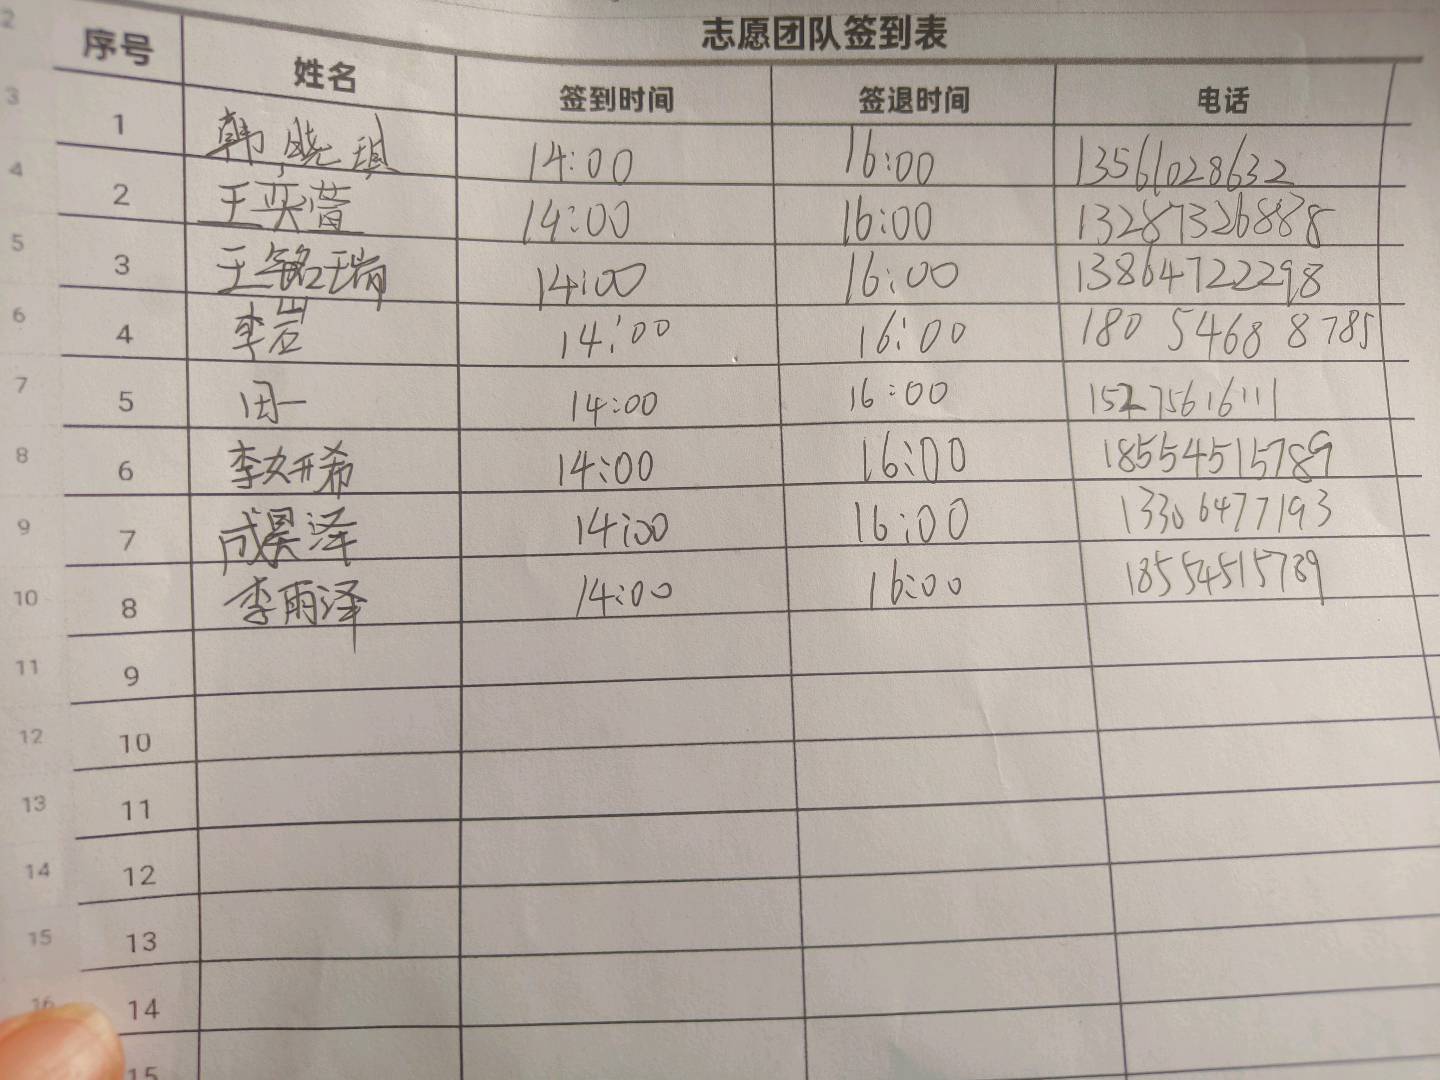 志愿团队签到表
序号 姓名 签到时间 签退时间 电话
2
3 1 韩晓琪 14:00 16:00 13561028632
4 2 王奕萱 14:00 16:00 13287326888
5 3 王铭瑞 14:00 16:00 13864722298
6 4 李岩 14:00 16:00 180 5468 8785
7 5 田一 14:00 16:00 15275616111
8 6 李妍希 14:00 16:00 18554515789
9 7 成昊泽 14:00 16:00 13306477193
10 8 李雨泽 14:00 16:00 18554515789
11 9
12 10
13 11
14 12
15 13
16 14
15